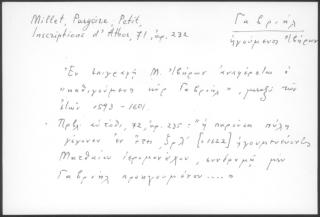 Millet, Pargoire, Petit,
Inscriptions d'Athos, 71, ἀρ. 232
Γαβριήλ
ἡγούμενος Ἰβήρων
Ἐν ἐπιγραφῇ Μ. Ἰβήρων ἀναφέρεται ὁ
"καθηγούμενος κὺρ Γαβριήλ", μεταξὺ τῶν
ἐτῶν 1593 - 1601.
· Πρβλ. αὐτόθι, 72, ἀρ. 235: "ἡ παροῦσα πύλη
γέγονεν ἐν ἔτει ͵ζρλ΄ [=1622] ἡγουμενεύοντος
Ματθαίου ἱερομονάχου, συνδρομῇ μου
Γαβριὴλ προηγουμένου....."